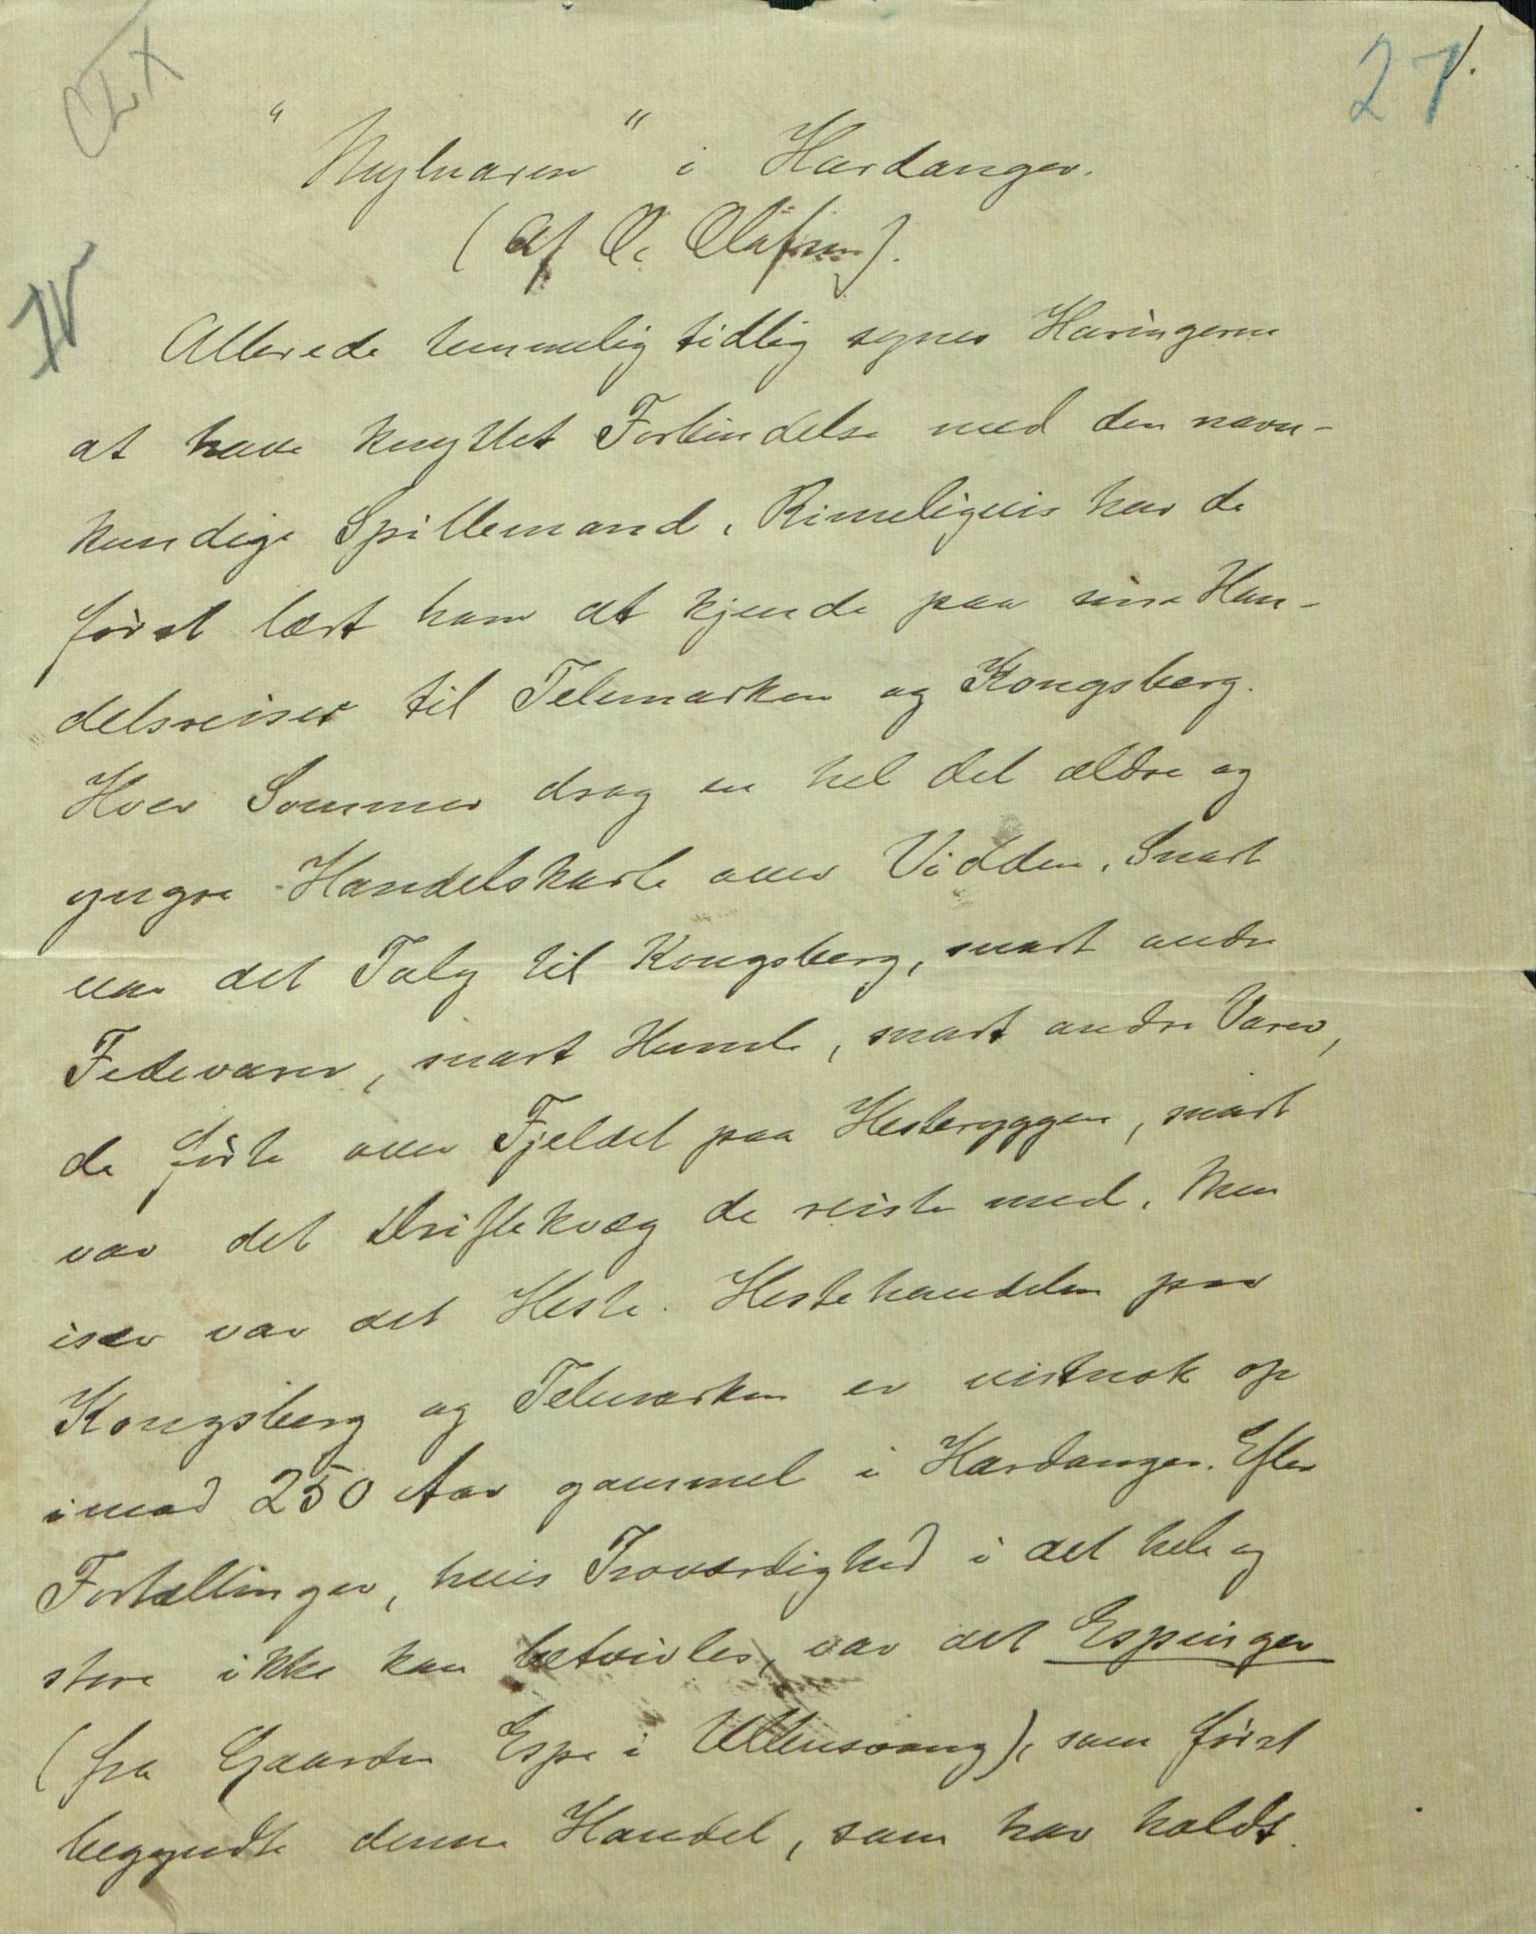 27.
"Myllaren" i Hardanger.
(Af O. Olafsen).
IV
Allerede temmelig tidlig synes Haringerne
at have knyttet Forbindelse med den navn-
kundige Spillemand. Rimeligvis har de
først lært ham at kjende paa sine Han-
delsreiser til Telemarken og Kongsberg.
Hver Sommer drog en hel del ældre og
yngre Handelskarle over Vidden. Snart
var det Talg til Kongsberg, snart andre
Fedevarer, snart Humle, snart andre Varer,
de førte over Fjeldet paa Hesteryggen, snart
var det Driftekvæg de reiste med. Men
især var det Heste. Hestehandelen paa
Kongsberg og Telemarken er vistnok op
imod 250 Aar gammel i Hardanger. Efter
Fortællinger, hvis Troværdighed i det hele og
store ikke kan betvivles, var det Espinger
(fra Gaarden Espe i Ullensvang), som først
begyndte denne Handel, som har holdt